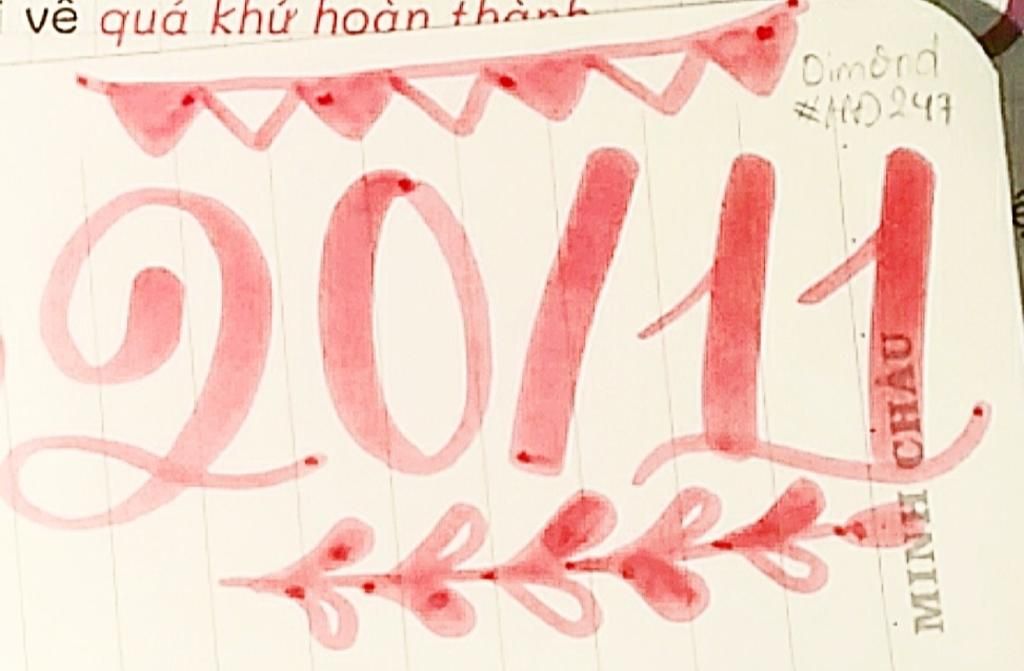 i về quá khứ hoàn thành
Dimond
#MD247
20/11
MINH CHÂU